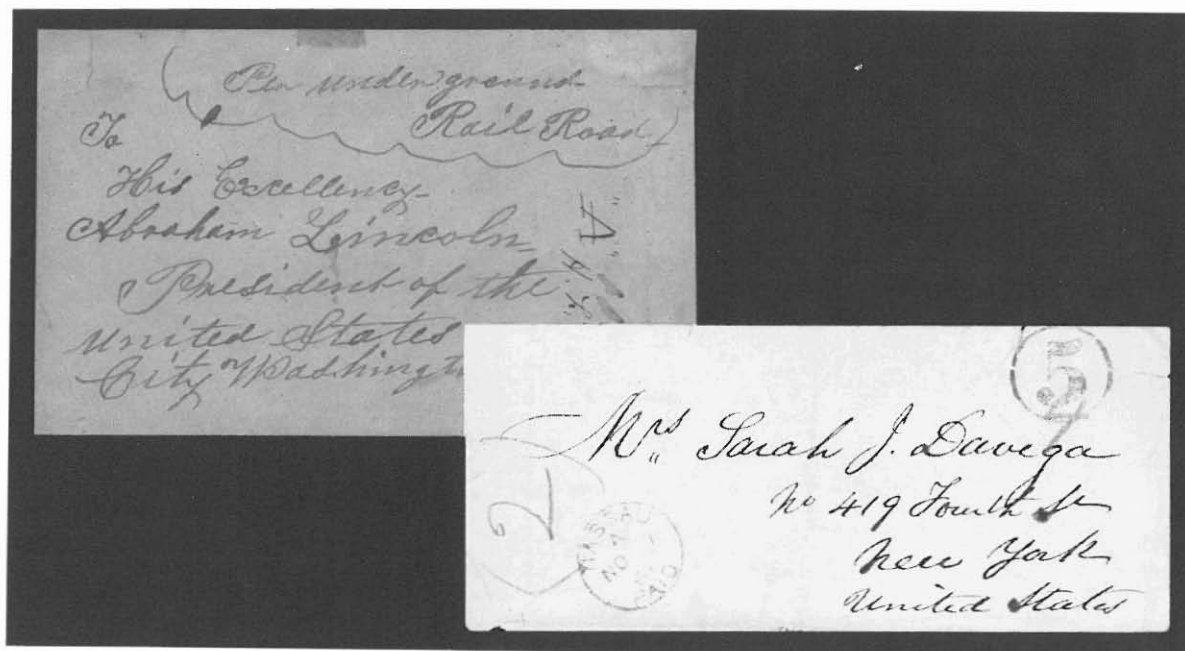 Per under ground
Rail Road
To
His Excellency
Abraham Lincoln
President of the
United States
City Washingt
"A"
Mrs Sarah J. Davega
No 419 Fourth St
New York
United States
2
NASSAU
NO 7
PAID